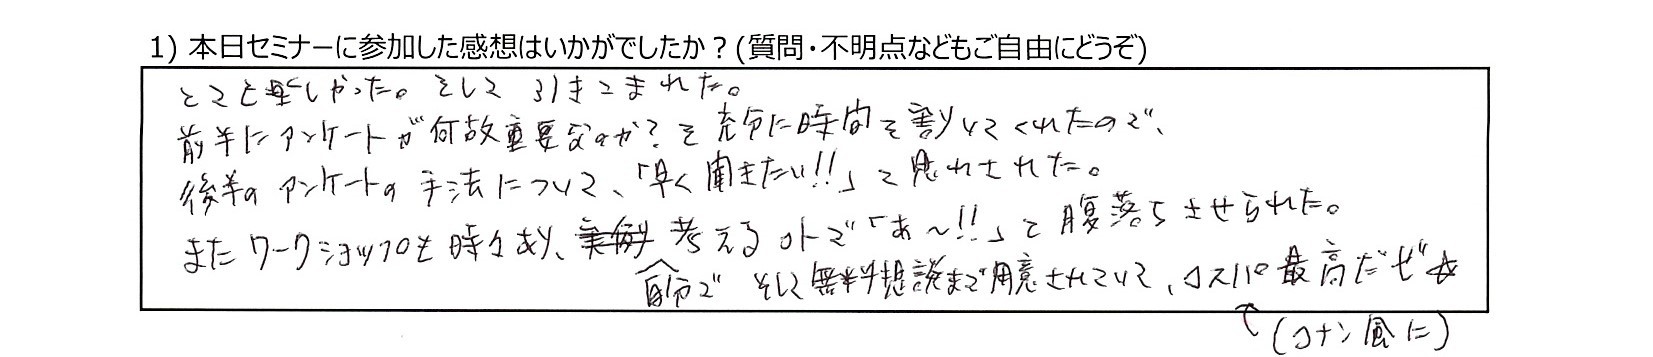 1) 本日セミナーに参加した感想はいかがでしたか？(質問・不明点などもご自由にどうぞ)
とても楽しかった。そして 引きこまれた。
前半にアンケートが何故重要なのか？を充分に時間を割いてくれたので、
後半のアンケートの手法について、「早く聞きたい!!」と思わされた。
またワークショップも時々あり、自分で考えるコトで「あ〜!!」と腹落ちさせられた。
そして無料相談まで用意されていて、コスパ最高だぜ☆
↑(コナン風に)